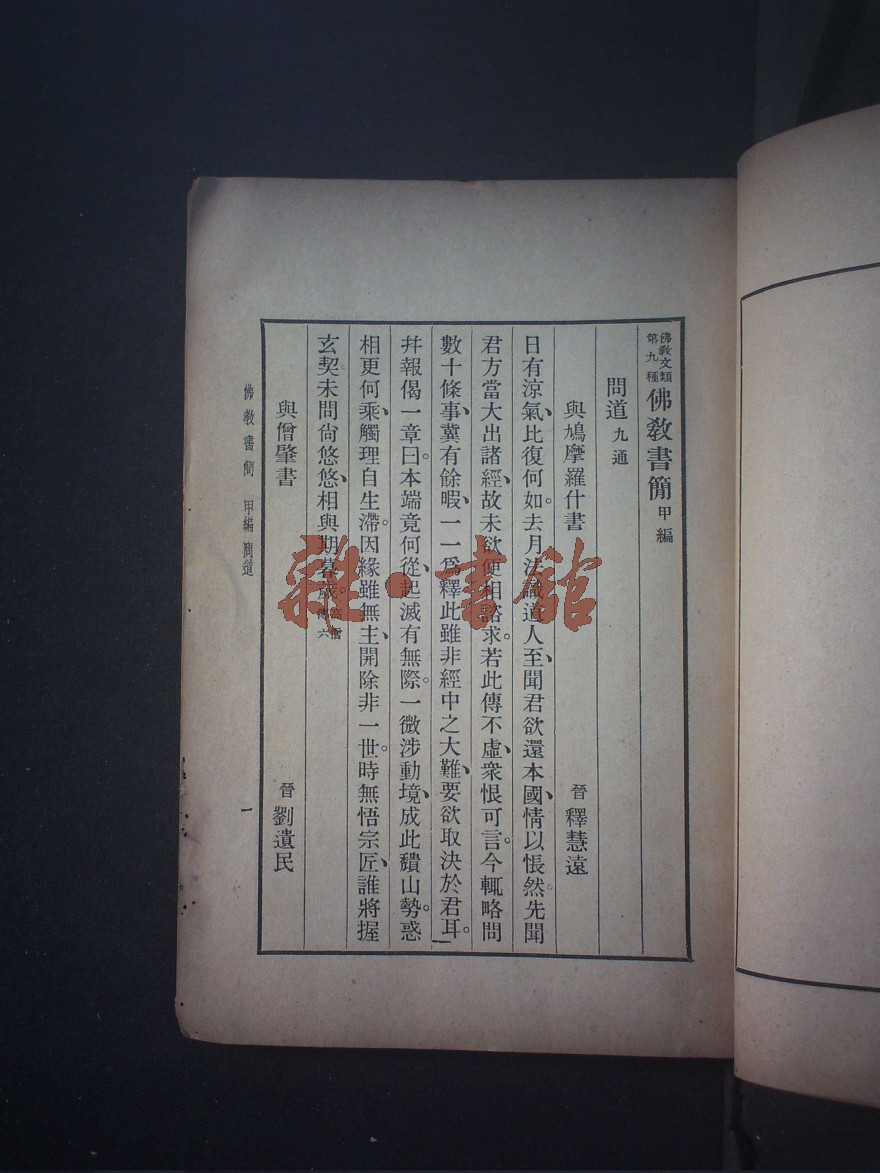 佛敎文類
第九種
佛敎書簡 甲編
問道 九通
與鳩摩羅什書 晉 釋慧遠
日有涼氣、比復何如。去月法識道人至、聞君欲還本國、情以悵然。先聞
君方當大出諸經、故未欲便相諮求。若此傳不虛、衆恨可言。今輒略問
數十條事、冀有餘暇、一一爲釋。此雖非經中之大難、要欲取決於君耳。
幷報偈一章曰。本端竟何從、起滅有無際。一微涉動境、成此穨山勢。惑
相更何乘、觸理自生滯。因緣雖無主、開除非一世。時無悟宗匠、誰將握
玄契。未問尙悠悠、相與期暮歲。高僧
傳六
與僧肇書 晉 劉遺民
佛敎書簡 甲編 問道 一
雜·書館